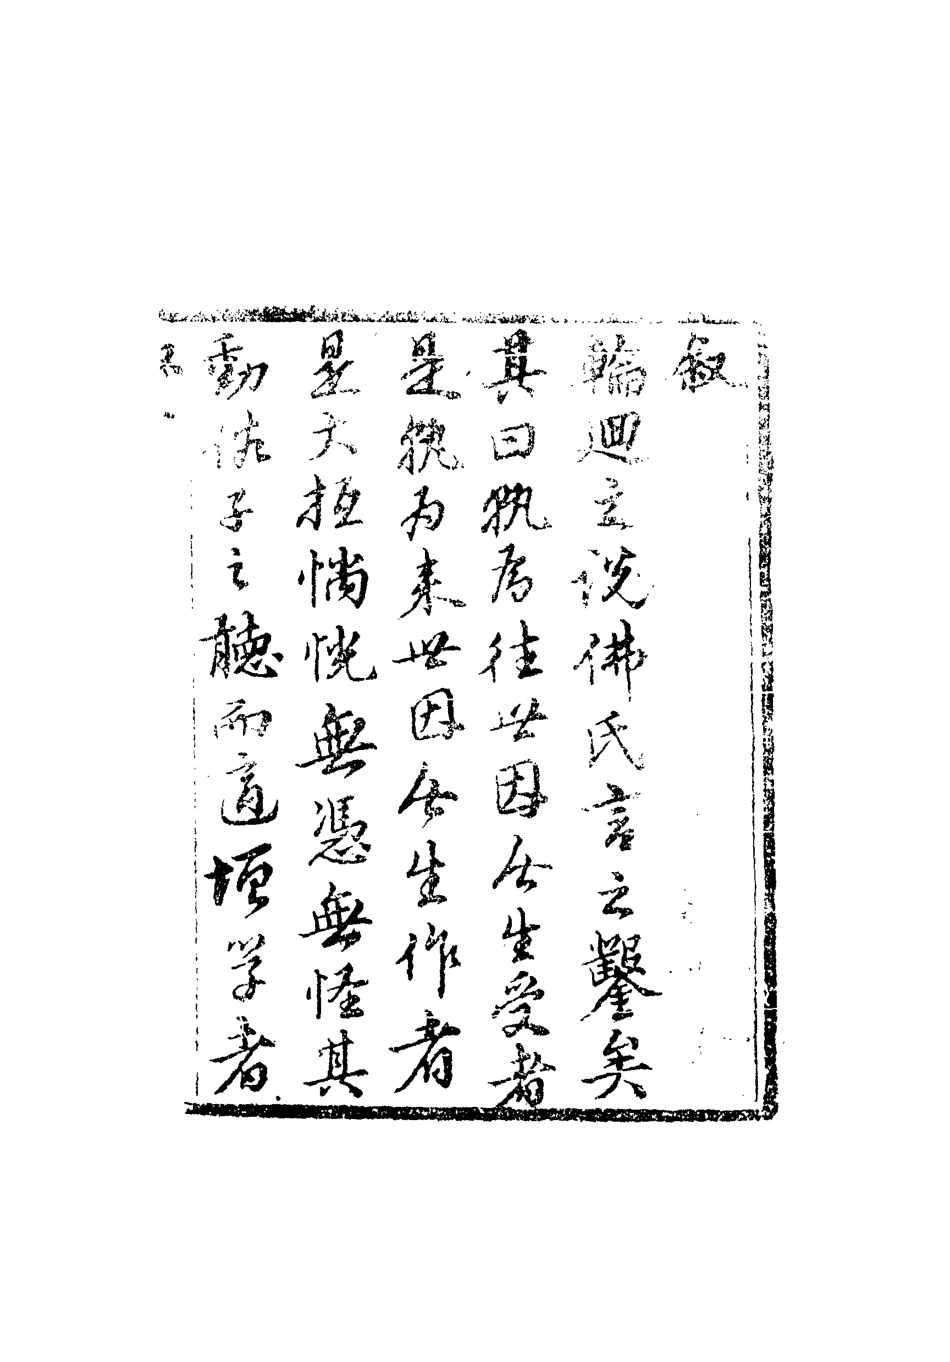 叙
輪迴之說佛氏言之鑿矣
其曰孰為往世因今生受者
是孰為來世因今生作者
是大抵惝恍無憑無怪其
動佔子之聽而適堙学者